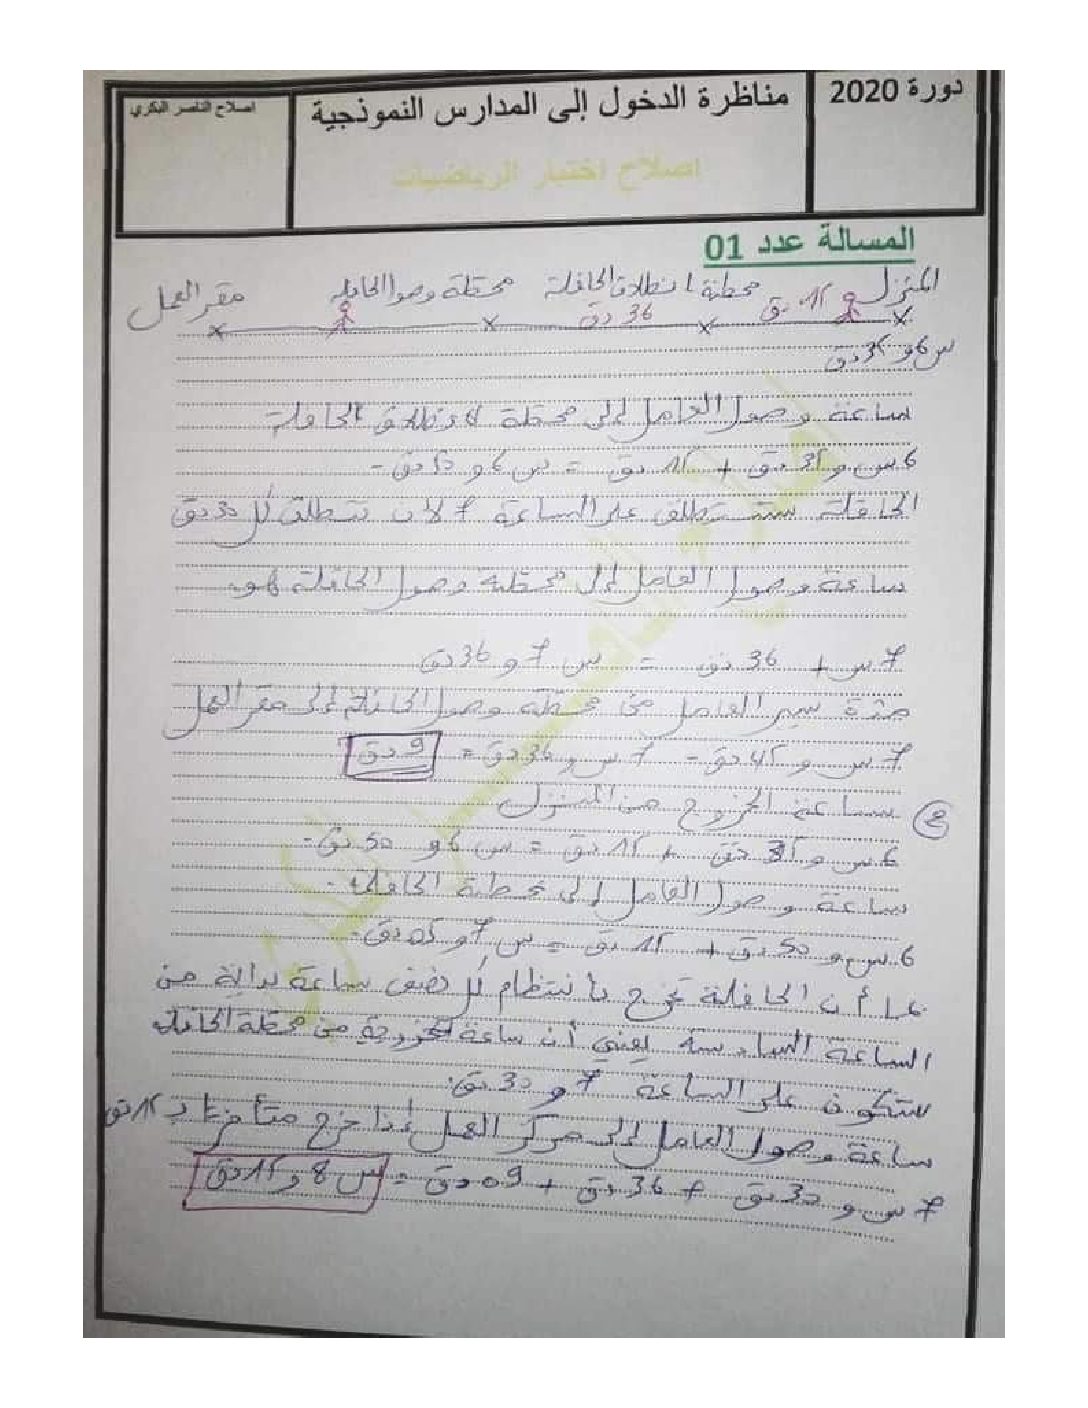 دورة 2020
مناظرة الدخول إلى المدارس النموذجية
اصلاح الناصر البكري
اصلاح اختبار الرياضيات
المسالة عدد 01
المنزل محطة انطلاق الحافلة محطة وصول الحافلة مقر العمل
15 دق 36 دق
س 6 و 35 دق
ساعة وصول العامل إلى محطة انطلاق الحافلة
6 س و 35 دق + 15 دق = س 6 و 50 دق -
الحافلة ستنطلق على الساعة 7 لان تنطلق كل 30 دق
ساعة وصول العامل إلى محطة وصول الحافلة هو
7 س + 36 دق = س 7 و 36 دق
مدة سير العامل من محطة وصول الحافلة إلى مقر العمل
7 س و 45 دق - 7 س و 36 دق = 9 دق
② ساعة الخروج من المنزل
6 س و 35 دق + 15 دق = س 6 و 50 دق -
ساعة وصول العامل إلى محطة الحافلة -
6 س و 50 دق + 15 دق = س 7 و 05 دق -
بما أن الحافلة تخرج بانتظام كل نصف ساعة بداية من
الساعة السادسة يعني أن ساعة خروجه من محطة الحافلة
ستكون على الساعة 7 و 30 دق.
ساعة وصول العامل إلى مركز العمل إذا خرج متأخرا بـ 15 دق
7 س و 30 دق + 36 دق + 09 دق = س 8 و 15 دق